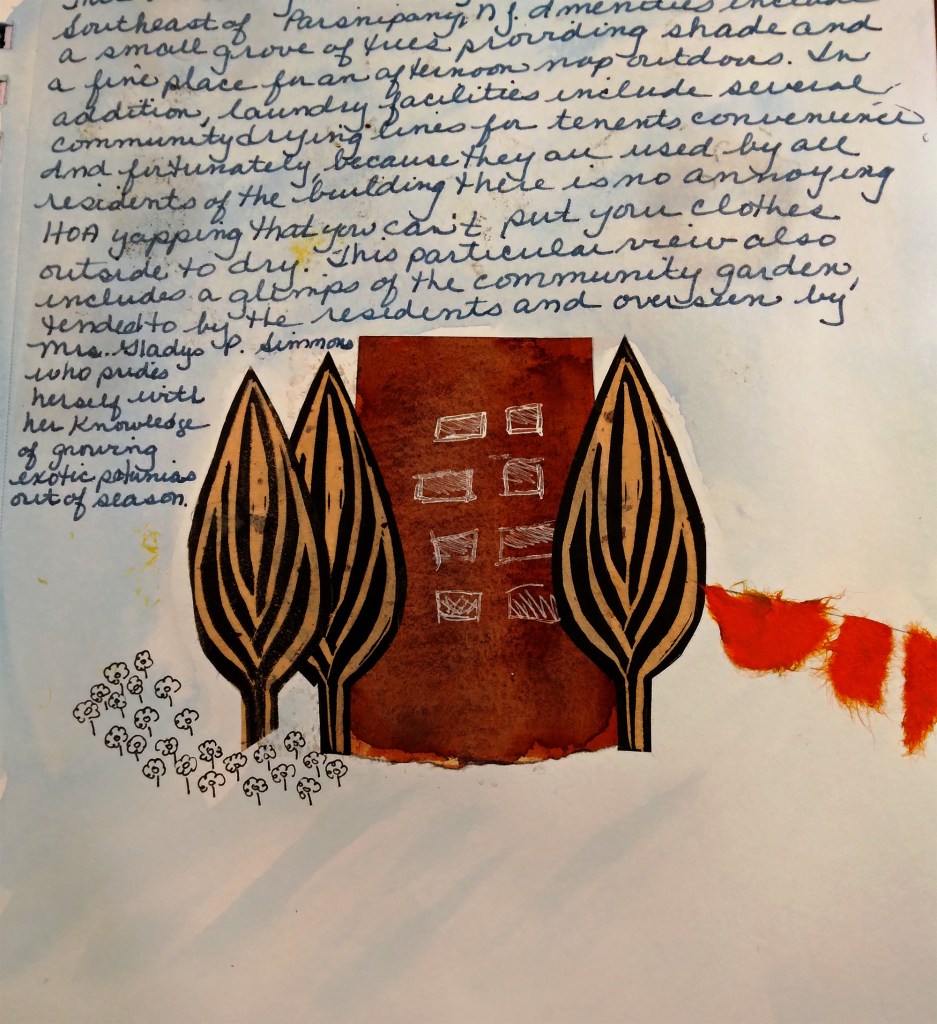 Southeast of Parsnipany, N J. Amenities include
a small grove of trees providing shade and
a fine place for an afternoon nap outdoors. In
addition, laundry facilities include several
community drying lines for tenents convenience
And fortunately, because they are used by all
residents of the building there is no annoying
HOA yapping that you can't put your clothes
outside to dry. This particular view also
includes a glimps of the community garden,
tended to by the residents and overseen by
Mrs. Gladys P. Simmons
who prides
herself with
her knowledge
of growing
exotic petunias
out of season.